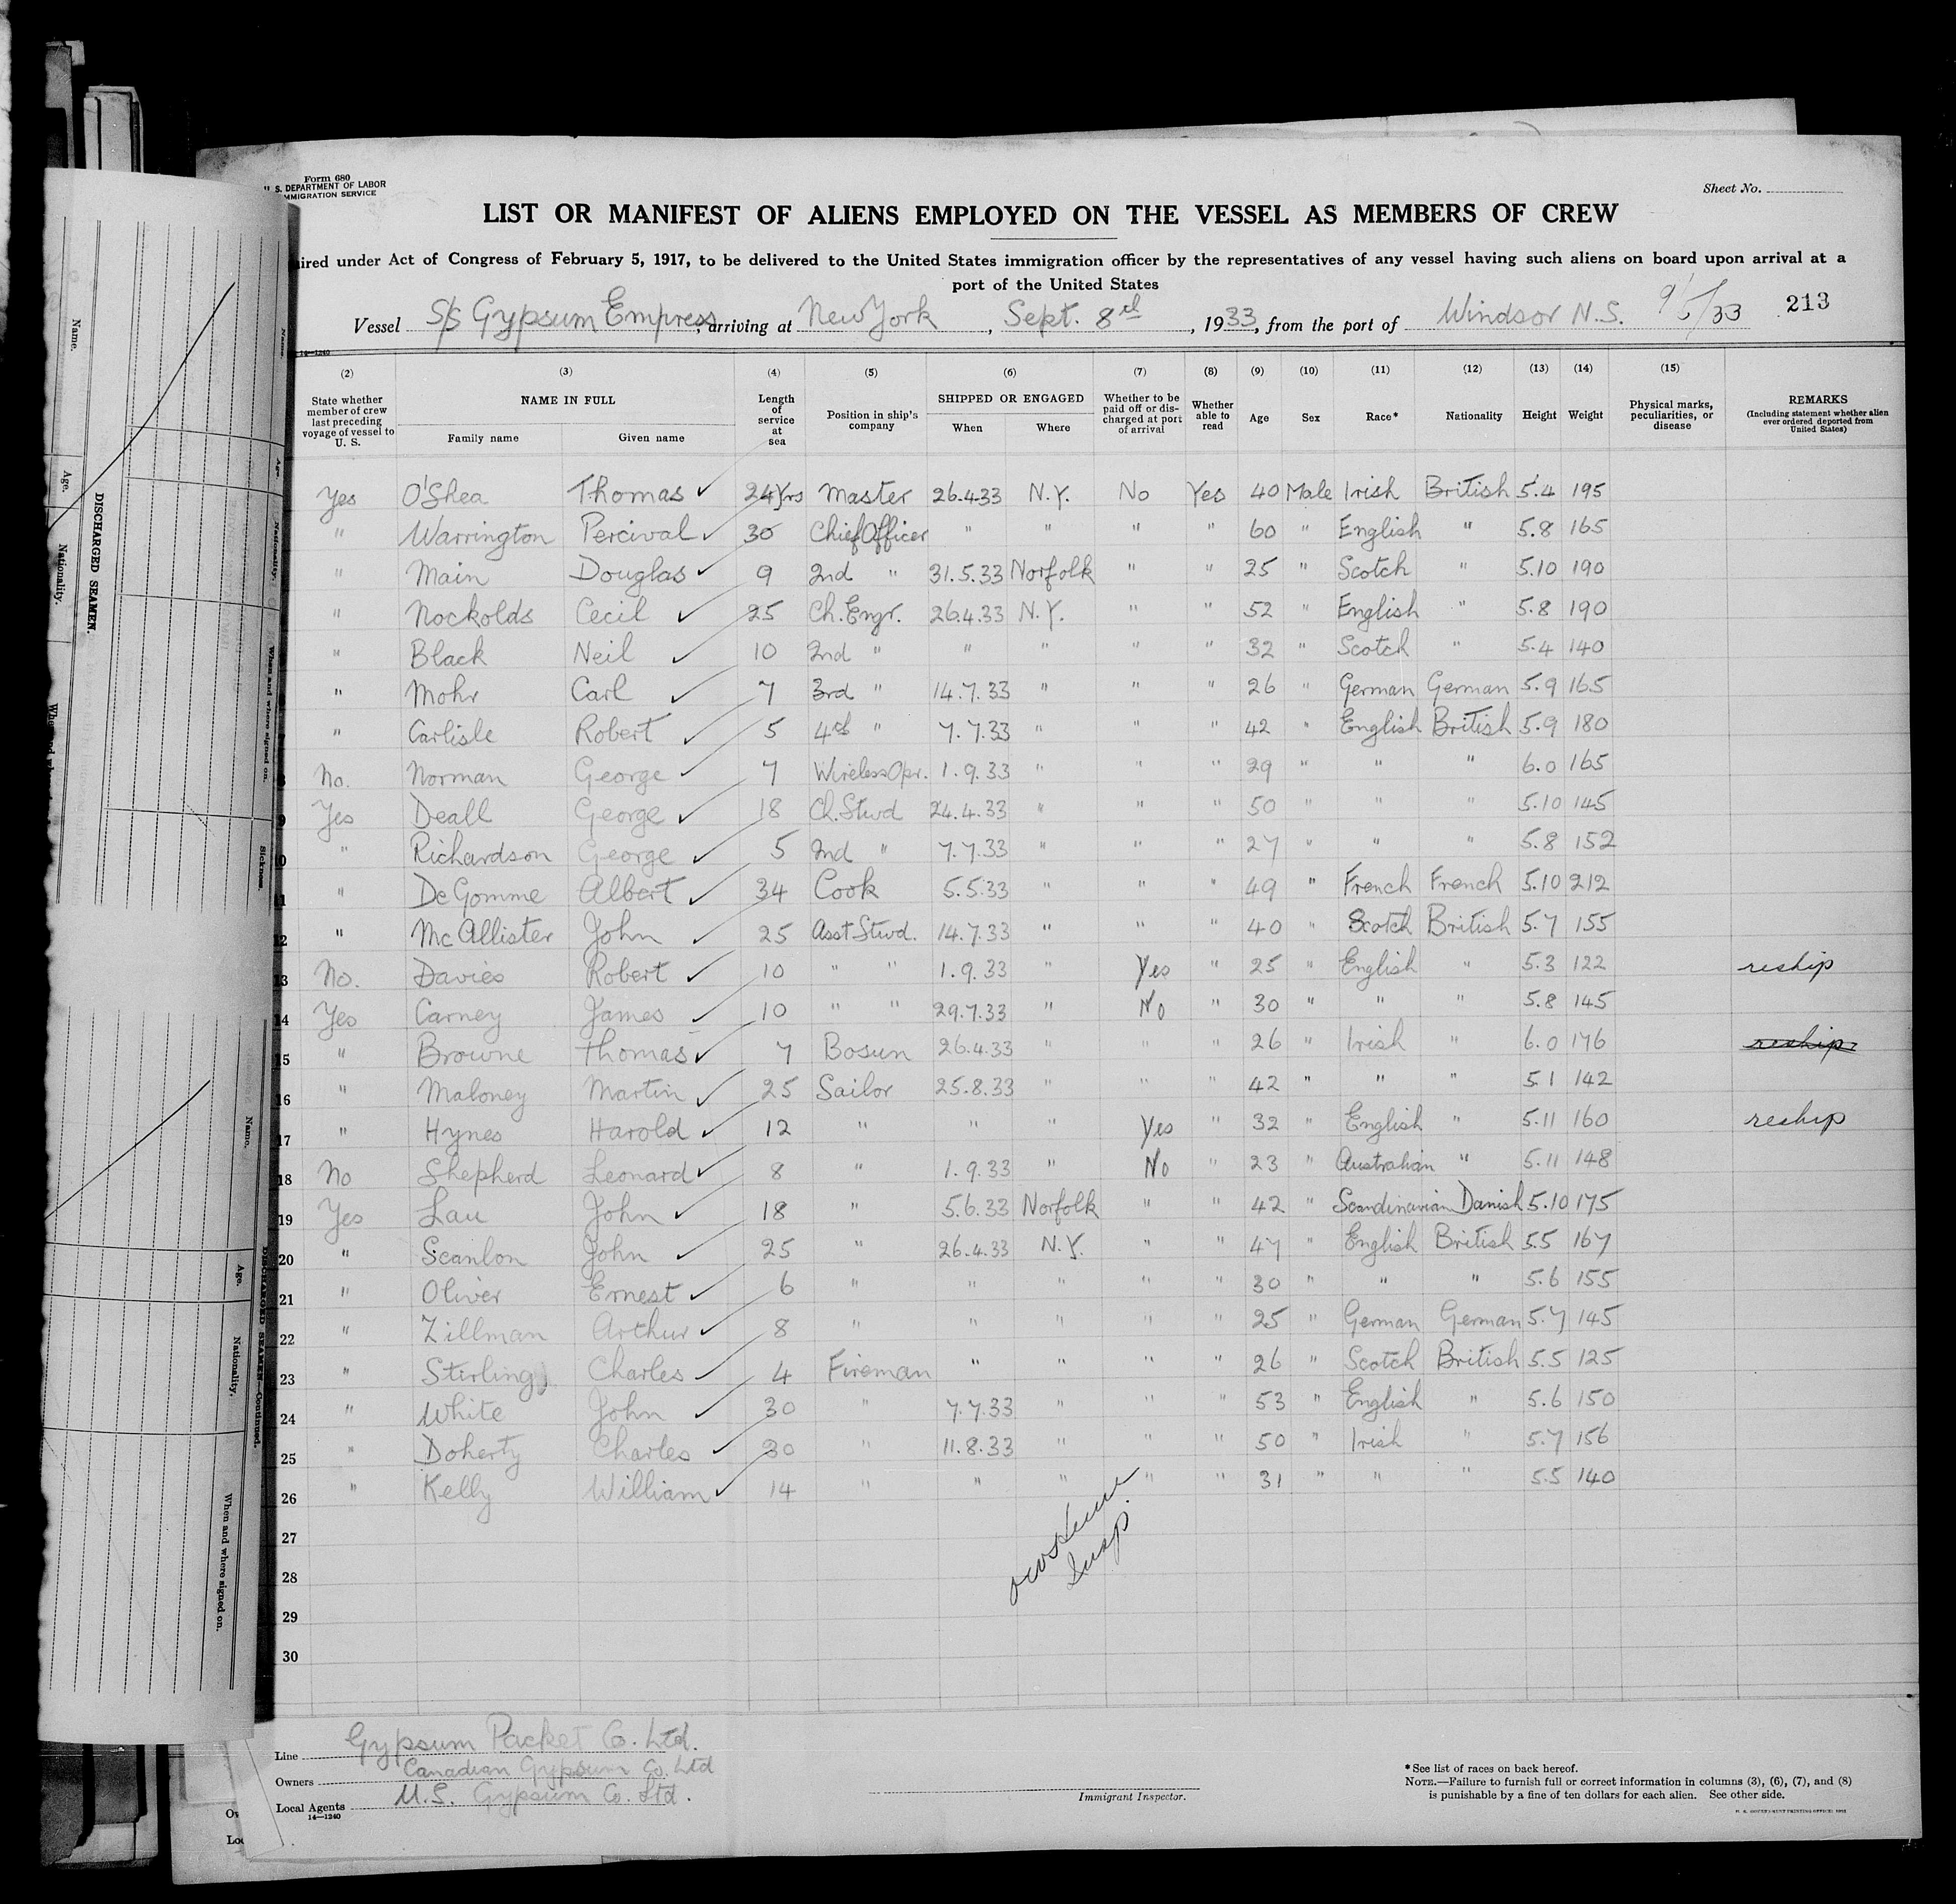 Form 680
U. S. DEPARTMENT OF LABOR
IMMIGRATION SERVICE
Sheet No.
LIST OR MANIFEST OF ALIENS EMPLOYED ON THE VESSEL AS MEMBERS OF CREW
uired under Act of Congress of February 5, 1917, to be delivered to the United States immigration officer by the representatives of any vessel having such aliens on board upon arrival at a
port of the United States
Vessel S/S Gypsum Empress, arriving at New York, Sept. 8th, 1933, from the port of Windsor N.S. 213
14—1240
(2) (3) (4) (5) (6) (7) (8) (9) (10) (11) (12) (13) (14) (15)
State whether member of crew last preceding voyage of vessel to U. S. | NAME IN FULL | Family name | Given name | Length of service at sea | Position in ship's company | SHIPPED OR ENGAGED | When | Where | Whether to be paid off or discharged at port of arrival | Whether able to read | Age | Sex | Race* | Nationality | Height | Weight | Physical marks, peculiarities, or disease | REMARKS (Including statement whether alien ever ordered deported from United States)
Yes O'Shea Thomas ✓ 24Yrs Master 26.4.33 N.Y. No Yes 40 Male Irish British 5.4 195
" Warrington Percival ✓ 30 Chief Officer " " " " 60 " English " 5.8 165
" Main Douglas ✓ 9 2nd " 31.5.33 Norfolk " " 25 " Scotch " 5.10 190
" Nockolds Cecil ✓ 25 Ch. Engr. 26.4.33 N.Y. " " 52 " English " 5.8 190
" Black Neil ✓ 10 2nd " " " " " 32 " Scotch " 5.4 140
" Mohr Carl ✓ 7 3rd " 14.7.33 " " " 26 " German German 5.9 165
" Carlisle Robert ✓ 5 4th " 7.7.33 " " " 42 " English British 5.9 180
8 No. Norman George ✓ 7 Wireless Opr. 1.9.33 " " " 29 " " " 6.0 165
9 Yes Deall George ✓ 18 Ch. Stwd 24.4.33 " " " 50 " " " 5.10 145
10 " Richardson George ✓ 5 2nd " 7.7.33 " " " 27 " " " 5.8 152
11 " De Gomme Albert ✓ 34 Cook 5.5.33 " " " 49 " French French 5.10 212
12 " McAllister John ✓ 25 Asst Stwd. 14.7.33 " " " 40 " Scotch British 5.7 155
13 No. Davies Robert ✓ 10 " " 1.9.33 " Yes " 25 " English " 5.3 122 reship
14 Yes Carney James ✓ 10 " " 29.7.33 " No " 30 " " " 5.8 145
15 " Browne Thomas ✓ 7 Bosun 26.4.33 " " " 26 " Irish " 6.0 176 reship
16 " Maloney Martin ✓ 25 Sailor 25.8.33 " " " 42 " " " 5.1 142
17 " Hynes Harold ✓ 12 " " " Yes " 32 " English " 5.11 160 reship
18 No Shepherd Leonard ✓ 8 " 1.9.33 " No " 23 " Australian " 5.11 148
19 Yes Lau John ✓ 18 " 5.6.33 Norfolk " " 42 " Scandinavian Danish 5.10 175
20 " Scanlon John ✓ 25 " 26.4.33 N.Y. " " 47 " English British 5.5 167
21 " Oliver Ernest ✓ 6 " " " " " 30 " " " 5.6 155
22 " Zillman Arthur ✓ 8 " " " " " 25 " German German 5.7 145
23 " Stirling Charles ✓ 4 Fireman " " " " 26 " Scotch British 5.5 125
24 " White John ✓ 30 " 7.7.33 " " " 53 " English " 5.6 150
25 " Doherty Charles ✓ 30 " 11.8.33 " " " 50 " Irish " 5.7 156
26 " Kelly William ✓ 14 " " " " " 31 " " " 5.5 140
27
28
29
30
Insp.
Line Gypsum Packet Co. Ltd.
Owners Canadian Gypsum Co. Ltd
Local Agents U.S. Gypsum Co. Ltd.
14—1240
Immigrant Inspector.
*See list of races on back hereof.
NOTE.—Failure to furnish full or correct information in columns (3), (6), (7), and (8)
is punishable by a fine of ten dollars for each alien. See other side.
Name.
Age.
Nationality.
DISCHARGED SEAMEN.
When and where signed on.
Sickness
Name.
Age.
Nationality.
When and where signed on.
DISCHARGED SEAMEN—Continued.